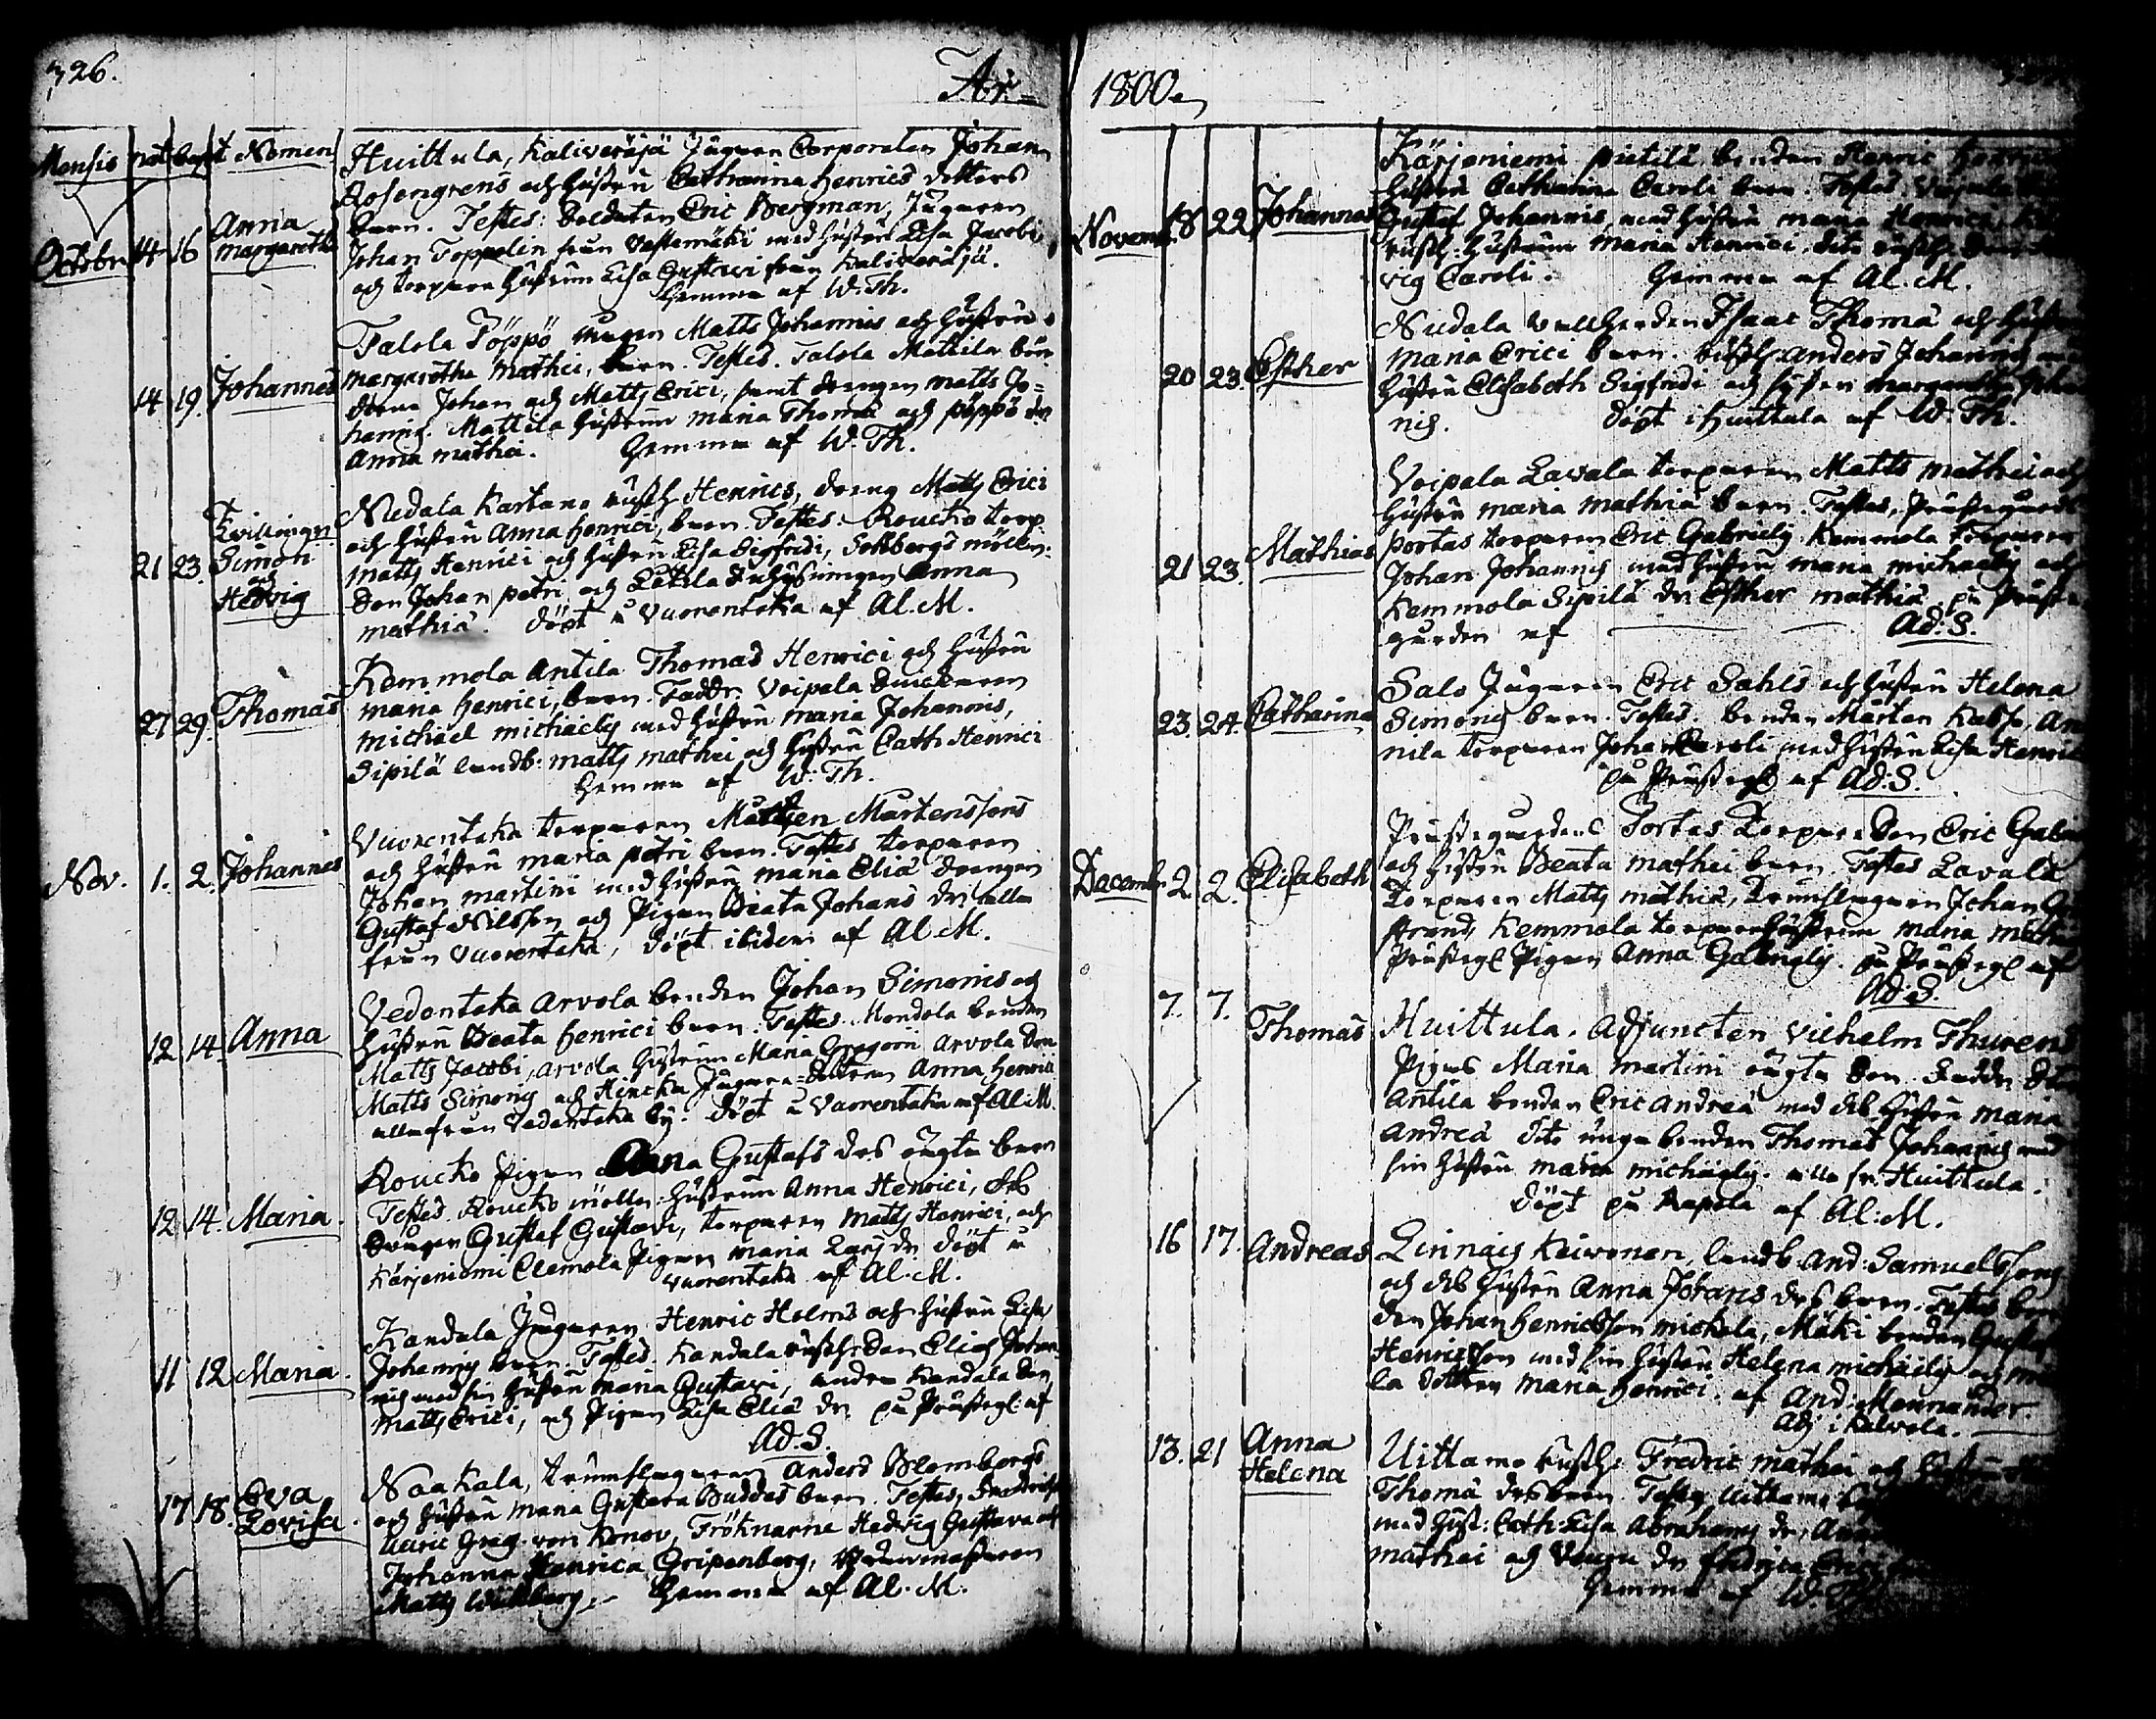 326. År
Mensis nat bapt Nomen
Huittula, Kaliveräjä Jägaren Corporalen Johan
Rosengrens och hustru Catharina Henrics dotters
barn. Testes: Soldaten Eric Bergman, Jägaren
Octobr. 14 16 Anna Margaretha
Johan Toppelin från Västemäki med hustru Lisa Jacobi
och torpare hustrun Lisa Gustavi från Kaliveräjä.
Hemma af W. Th.
Talola Pöppö mågen Matts Johannis och hustru
14 19. Johannes
Margaretha Mathei, barn. Testes. Talola Mattila bön-
derne Johan och Matts Erici, samt drengen Matts Jo-
hannis. Mattila hustrun Maria Thomæ och Pöppö dr
Anna Mathei. Hemma af W. Th.
Niedala Kartano rusth Henrics, dreng Matts Erici
21 23. Tvillingar Simon och Hedvig
och hustru Anna Henrici, barn. Testes: Roucko torp.
Matts Henrici och hustru Lisa Sigfridi, Sohlbergs mölln:
Dan Johan Petri och Anna
Mathiæ. döpt i Vuorentaka af Al. M.
Kemmola Antila Thomas Henrici och hustru
27 29. Thomas
Maria Henrici, barn. Faddr. Voipala
Michael Michaelis med hustru Maria Johannis,
Sipilä landb: Matts Mathei och hustru Cath Henrici
Hemma af W. Th.
Vuorentaka torparen Mattsen Martenssons
Nov. 1. 2. Johannes
och hustru Maria Petri barn. Testes torparen
Johan Martini med hustru Maria Eliæ drengen
Gustaf Nilsson och Pigan Beata Johans dr alla
från Vuorentaka, döpt ibidem af Al. M.
Vedentaka Arvola bonden Johan Simonis och
12 14. Anna
hustru Beata Henrici barn. Testes. Mondola bonden
Matts Jacobi, Arvola hustrun Maria Gregorii Arvola Son
Matts Simonis och Hincka Jägare-dottren Anna Henrici
alla från Vedentaka by. döpt i Vuorentaka af Al. M.
Roucko Pigan Anna Gustafs drs oägta barn
12 14. Maria.
Testes. Roucko möllar: hustrun Anna Henrici, dito
Drängen Gustaf Gustavi, torparen Matts Henrici, och
Kärjeniemi Clemola Pigan Maria Lars dr. döpt i
Vuorentaka af Al. M.
Kandala Jägaren Henric Holms och hustru Lisa
11 12 Maria.
Johannis barn. Testes. Kandala rusth: Son Elias Johan-
nis med sin hustru Maria Gustavi, andra Kandala Son
Matts Erici, och Pigan Lisa Eliæ dr. på Prästeg: af
Ad. S.
Naakala, trumslagaren Anders Blombergs
17 18. Eva Lovisa.
och hustru Maria Gustava Buddas barn. Testes,
Ulric Greg. von Konov, Fröknarne Hedvig Gustava och
Johanna Henrica Gripenberg,
Matts Wikberg, Hemma af Al. M.
1800.
Kärjeniemi Pietilä bonden Henric
hustru Catharina Caroli barn. Testes Voipala
Novemb. 18 22 Johannes
Gustaf Johannis med hustru Maria Henrici,
rusth: hustrun Maria Henrici, dito rusth:
vig Caroli. Hemma af Al. M.
Niedala vallherden Isaac Thomæ och hustru
20 23. Esther
Maria Erici barn. Anders Johannis
hustru Elisabeth Sigfridi och hustru Margaretha Johan
nis. döpt i Huittula af W. Th.
Voipala Lavala torparen Matts Mathei och
hustru Maria Mathiæ barn. Testes, Prästegårds
21 23. Mathias
Portas torparen Eric Gabrielis Kemmola torparen
Johan Johannis med hustru Maria Michaelis och
Kemmola Sipilä dr. Esther Mathiæ, på Präste
gården af Ad. S.
Salo Jägaren Eric Sahls och hustru Helena
23. 24. Catharina
Simonis barn. Testes. bonden Mårten
torparen Johan Caroli med hustru Lisa Henrici
på Prästeg af Ad. S.
Prästegårdens Portas torpare Son Eric Gabri
Decemb. 2. 2. Elisabeth
och hustru Beata Mathei barn. Testes Lavala
torparen Matts Mathiæ, trumslagaren Johan
strand, Kemmola torpare hustrun Maria
Prästeg Pigan Anna Gabrielis. på Prästeg af
Ad. S.
7. 7. Thomas
Huittula. Adjuncten Vilhelm Thurens
Pigas Maria Martini oägta Son. Faddr.
Antila bonden Eric Andreæ med dito hustru Maria
Andreæ dito unga bonden Thomas Johannis med
sin hustru Maria Michaelis. alla fr. Huittula.
döpt på Rapola af Al. M.
16 17. Andreas
Linnais Keivonen, landb. And: Samuelssons
och dito hustru Anna Johans drs barn. Testes bon
den Johan Henricsson Mickola, Mäki bonden Gustaf
Henricsson med sin hustru Helena Michaelis och
la dottren Maria Henrici. af And: Mennander.
Adj i Kalvola.
13. 21 Anna Helena
Uittamo rusth: Fredric Mathei och hustru
Thomæ drs barn. Testes, Uittamo
med hust: Cath: Lisa Abrahams dr,
Mathei och dr Fredrica
Hemma af W. Th.